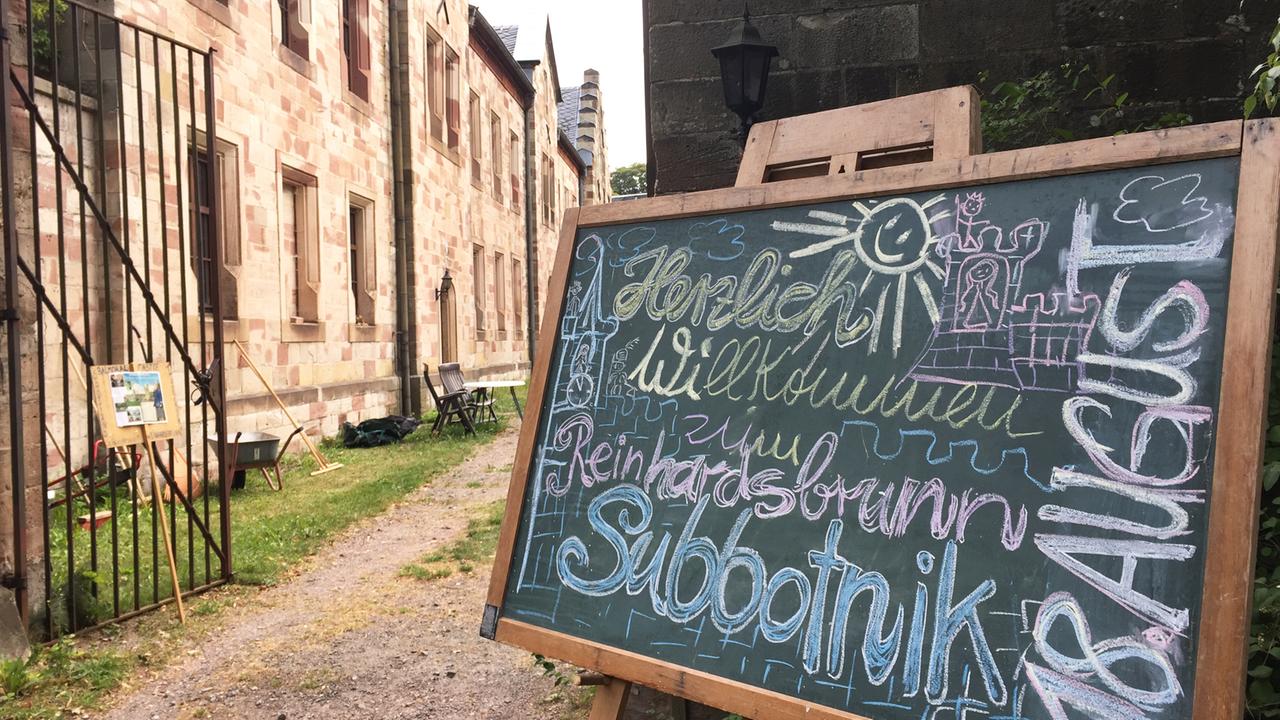 Herzlich
Willkommen
zum
Reinhardsbrunn
Subbotnik
18. AUGUST